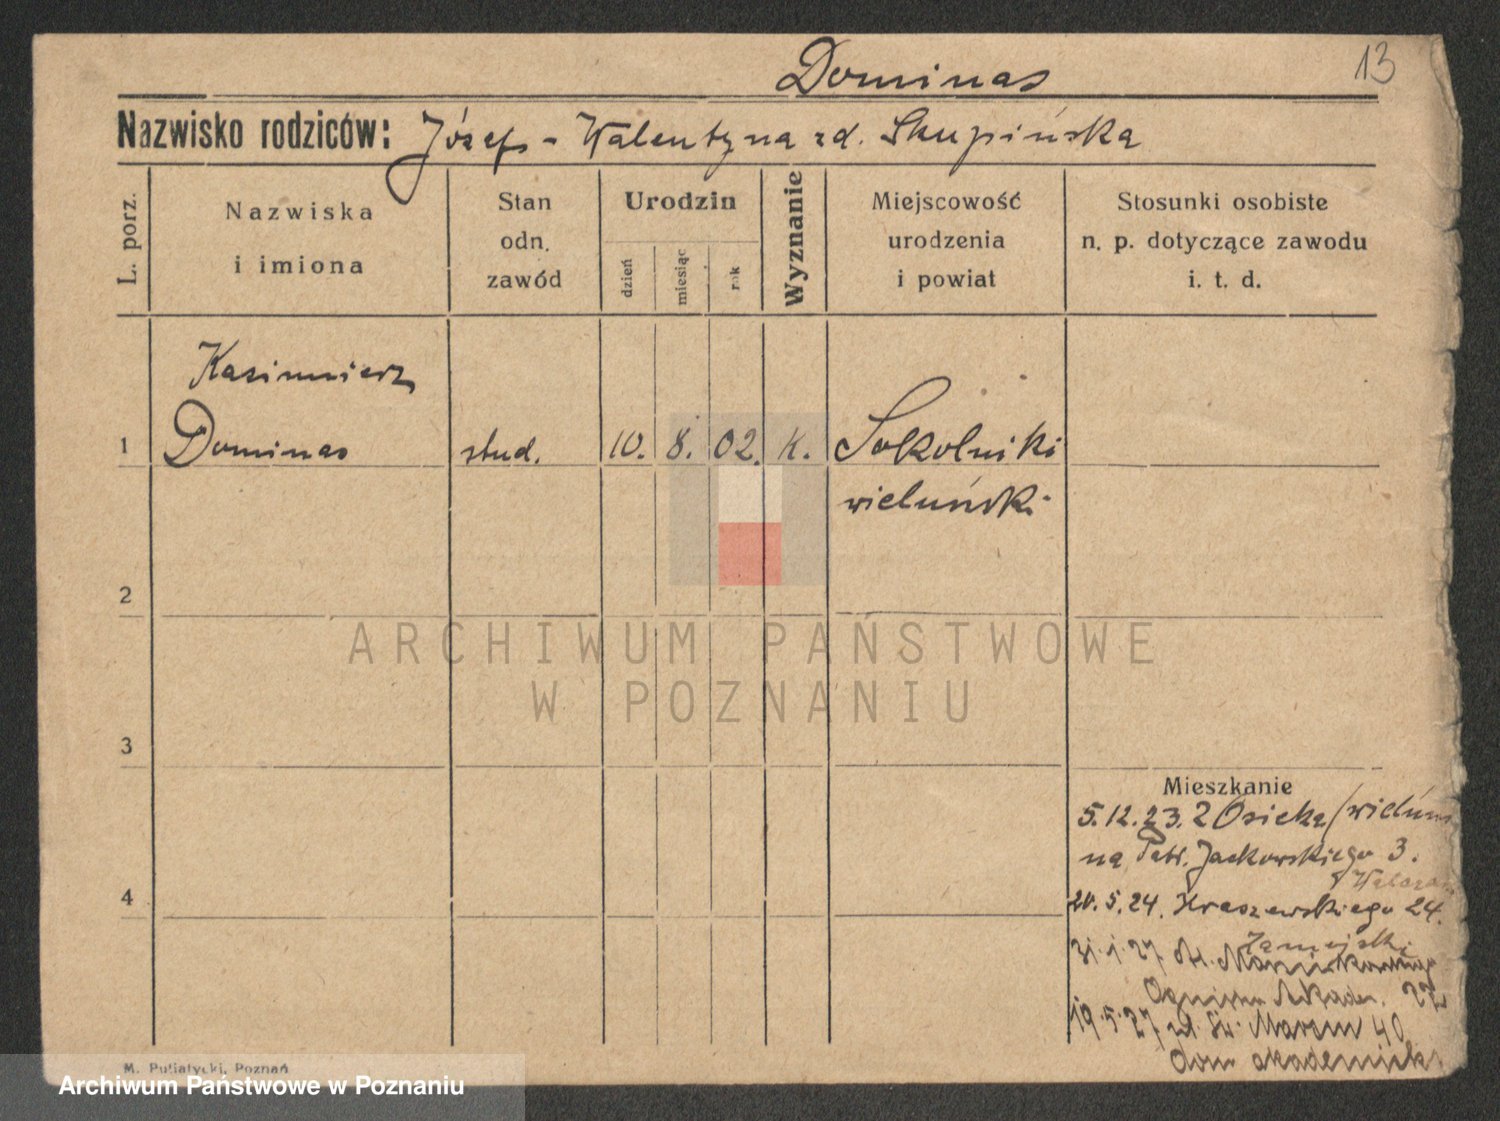 Dominas
13
Nazwisko rodziców: Józef - Walentyna zd. Skupińska
L. porz.
Nazwiska
i imiona
Stan
odn.
zawód
Urodzin
dzień
miesiąc
rok
Wyznanie
Miejscowość
urodzenia
i powiat
Stosunki osobiste
n. p. dotyczące zawodu
i. t. d.
Kazimierz
1 Dominas stud. 10. 8. 02. k. Sokolniki
wieluński
2
ARCHIWUM PAŃSTWOWE
W POZNANIU
3
Mieszkanie
5.12.23. z Osieka /wieluń
na Jackowskiego 3.
4
20.5.24. Kraszewskiego 24.
Zamojski
31.1.27.
22
19.5.27 Św. Marcin 40
dom akademick
M. Putiatycki, Poznań
Archiwum Państwowe w Poznaniu